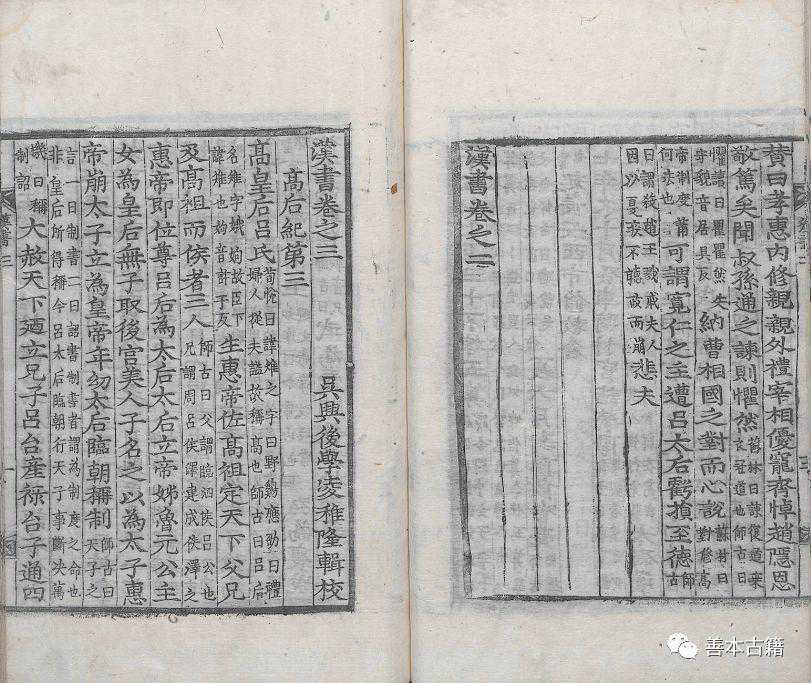 贊曰孝惠內修親親外禮宰相優寵齊悼趙隱恩
敬篤矣聞叔孫通之諫則懼然蘇林曰諫復道乘衣冠道也師古曰
懼讀曰瞿瞿然失守貌音居具反納曹相國之對而心說蘇林曰對脩高
帝制度蕭何法也可謂寬仁之主遭呂太后虧損至德師古
曰謂殺趙王戮戚夫人因以憂疾不聽政而崩悲夫
漢書卷之二
漢書卷之三
高后紀第三 吳興後學凌稚隆輯校
高皇后呂氏荀悅曰諱雉之字曰野雞應劭曰禮婦人從夫謚故稱高也師古曰呂后
名雉字娥姁故臣下諱雉也姁音許于反生惠帝佐高祖定天下父兄
及高祖而侯者三人師古曰父謂臨泗侯呂公也兄謂周呂侯澤建成侯釋之
惠帝即位尊呂后為太后太后立帝姊魯元公主
女為皇后無子取後宮美人子名之以為太子惠
帝崩太子立為皇帝年幼太后臨朝稱制師古曰天子之
言一曰制書二曰詔書制書者謂為制度之命也非皇后所得稱今呂太后臨朝行天子事斷決萬
機曰稱制詔大赦天下廼立兄子呂台產祿台子通四
善本古籍